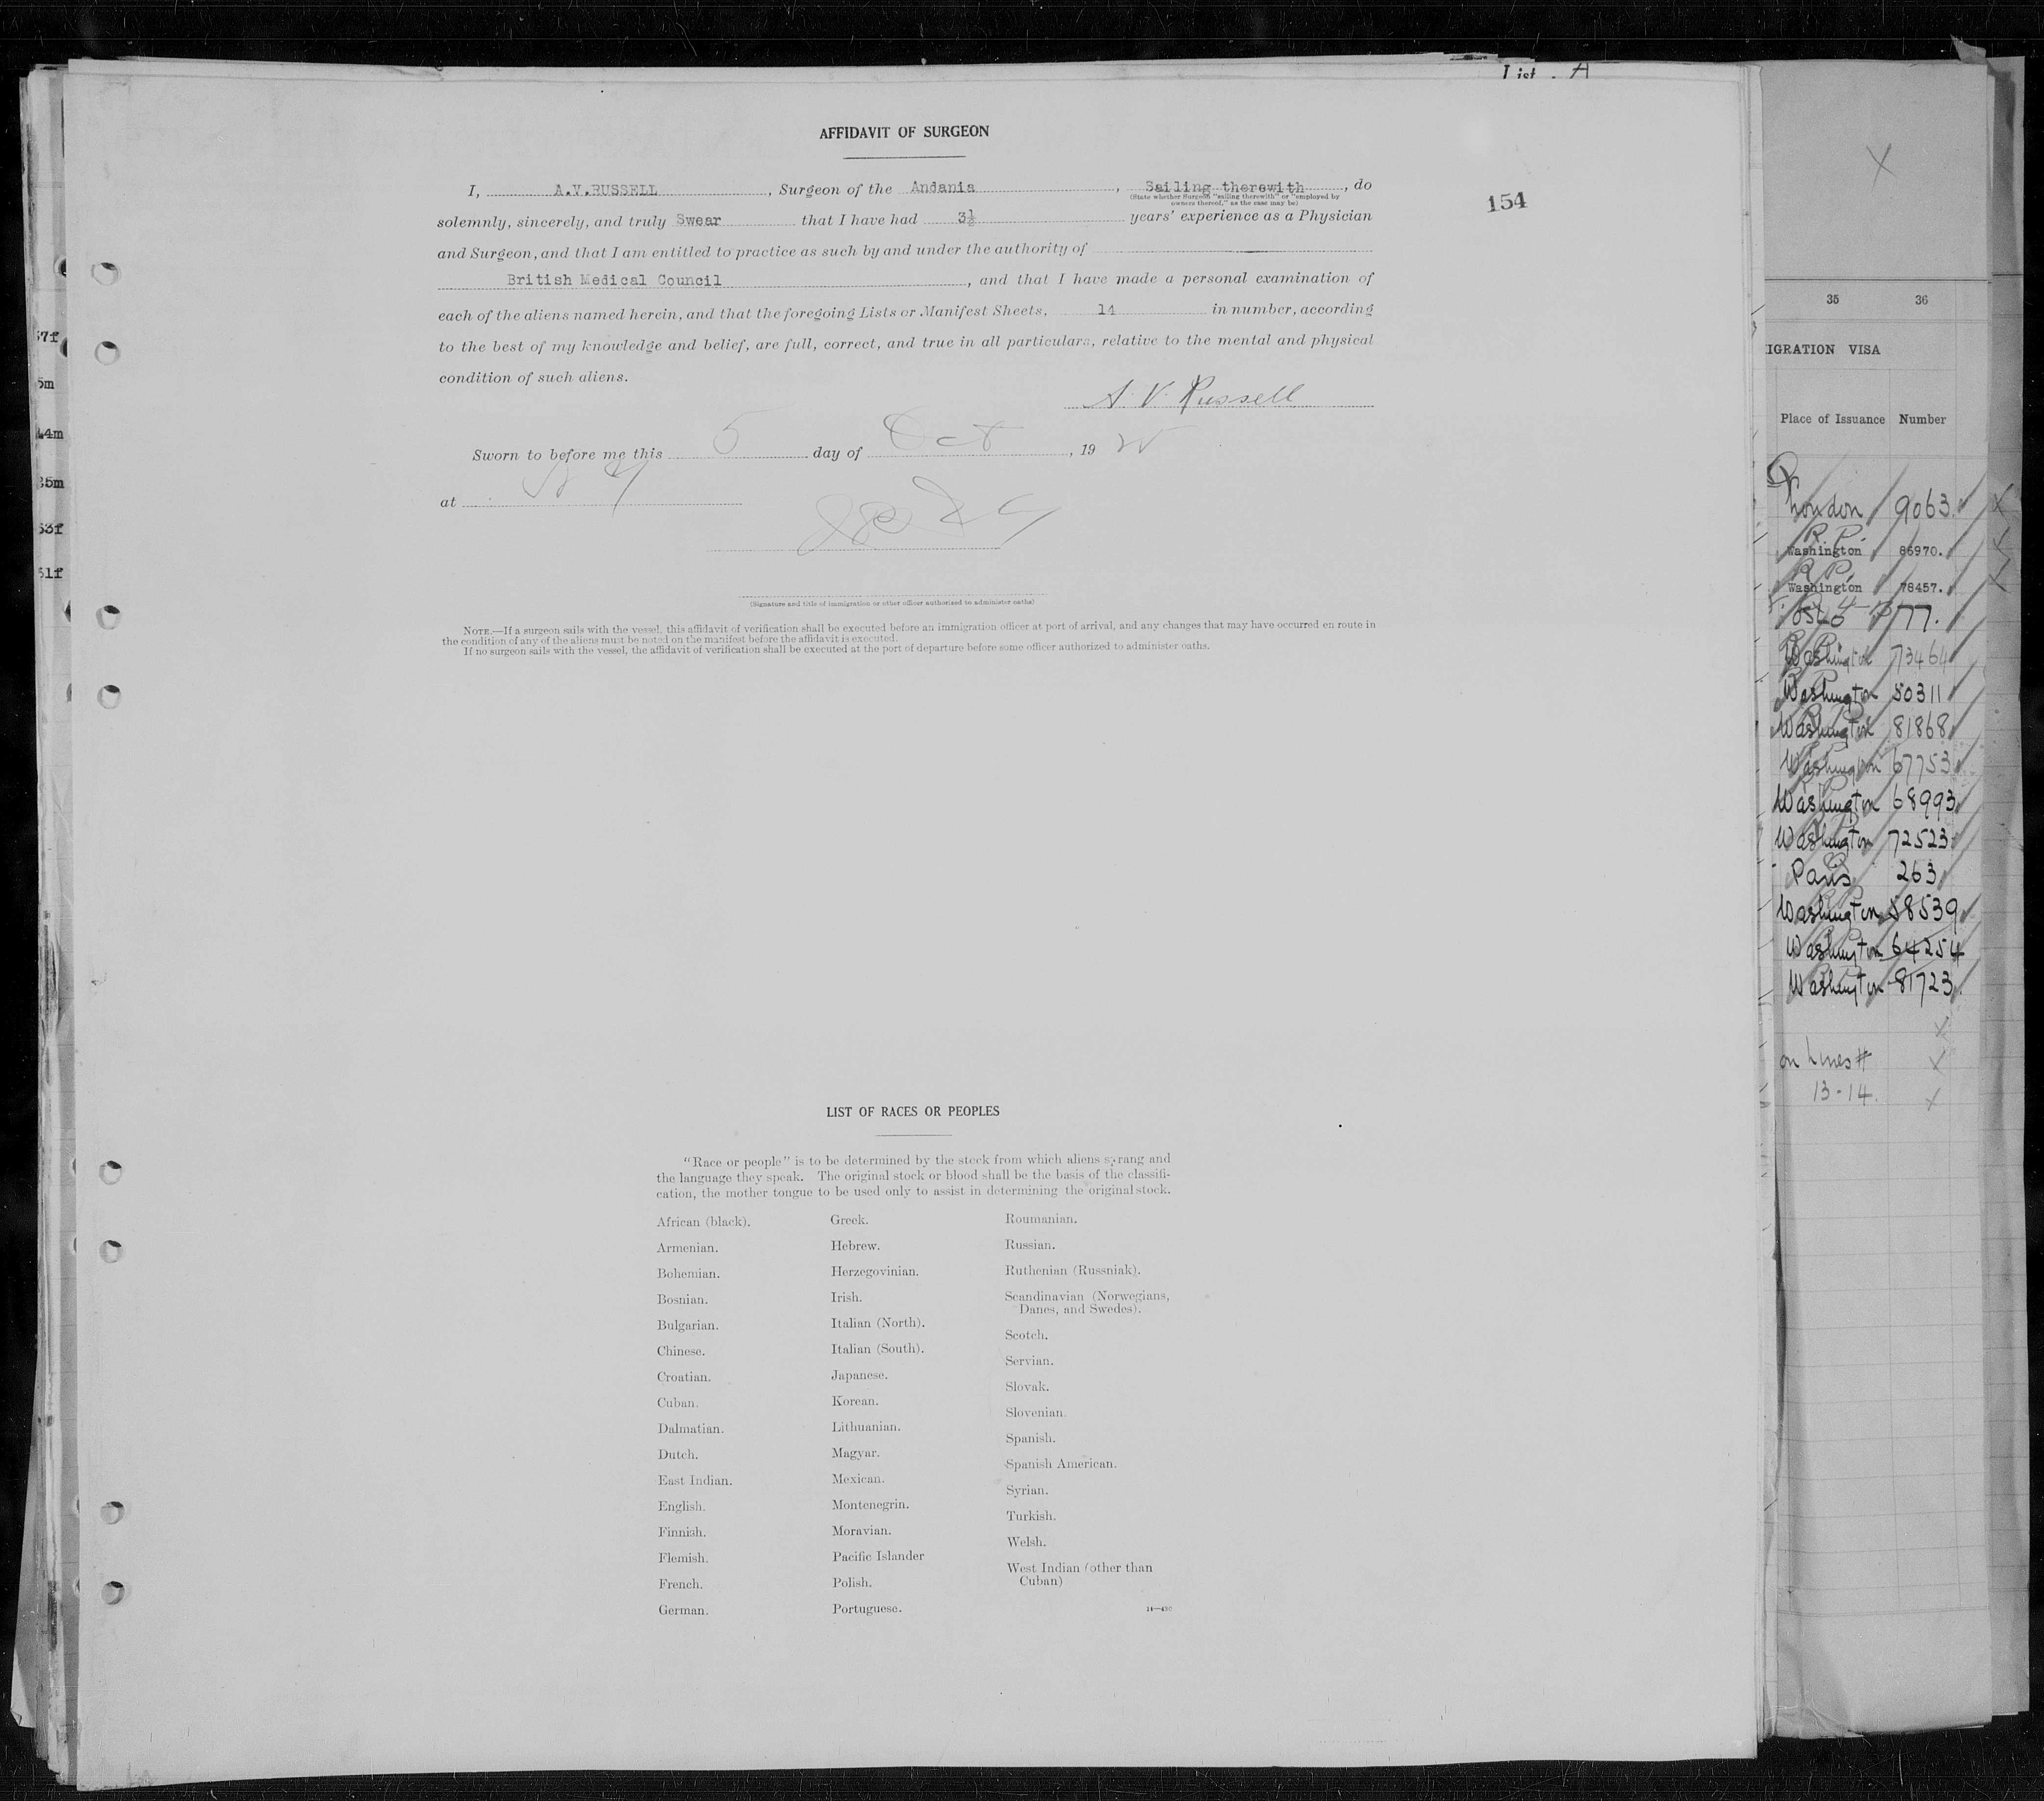 List. A
AFFIDAVIT OF SURGEON
154
I, A.V.RUSSELL, Surgeon of the Andania, Sailing therewith, do
(State whether Surgeon "sailing therewith" or "employed by
owners thereof," as the case may be)
solemnly, sincerely, and truly Swear that I have had 3½ years' experience as a Physician
and Surgeon, and that I am entitled to practice as such by and under the authority of
British Medical Council, and that I have made a personal examination of
each of the aliens named herein, and that the foregoing Lists or Manifest Sheets, 14 in number, according
to the best of my knowledge and belief, are full, correct, and true in all particulars, relative to the mental and physical
condition of such aliens.
A. V. Russell
Sworn to before me this 5 day of Oct, 19
at N Y
(Signature and title of immigration or other officer authorized to administer oaths)
NOTE.—If a surgeon sails with the vessel, this affidavit of verification shall be executed before an immigration officer at port of arrival, and any changes that may have occurred en route in
the condition of any of the aliens must be noted on the manifest before the affidavit is executed.
If no surgeon sails with the vessel, the affidavit of verification shall be executed at the port of departure before some officer authorized to administer oaths.
LIST OF RACES OR PEOPLES
"Race or people" is to be determined by the stock from which aliens sprang and
the language they speak. The original stock or blood shall be the basis of the classifi-
cation, the mother tongue to be used only to assist in determining the original stock.
African (black).
Armenian.
Bohemian.
Bosnian.
Bulgarian.
Chinese.
Croatian.
Cuban.
Dalmatian.
Dutch.
East Indian.
English.
Finnish.
Flemish.
French.
German.
Greek.
Hebrew.
Herzegovinian.
Irish.
Italian (North).
Italian (South).
Japanese.
Korean.
Lithuanian.
Magyar.
Mexican.
Montenegrin.
Moravian.
Pacific Islander
Polish.
Portuguese.
Roumanian.
Russian.
Ruthenian (Russniak).
Scandinavian (Norwegians,
Danes, and Swedes).
Scotch.
Servian.
Slovak.
Slovenian.
Spanish.
Spanish American.
Syrian.
Turkish.
Welsh.
West Indian (other than
Cuban)
14—430
7f
5m
44m
35m
53f
51f
X
35 36
IGRATION VISA
Place of Issuance Number
London 9063.
R. P.
Washington 86970.
R P.
Washington 78457.
Oslo 77.
Washington 73464
Washington 50311
Washington 81868
Washington 67753
Washington 68993
Washington 72523
Paris 263
Washington 58539
Washington 64254
Washington 81723
on Lines #
13-14.